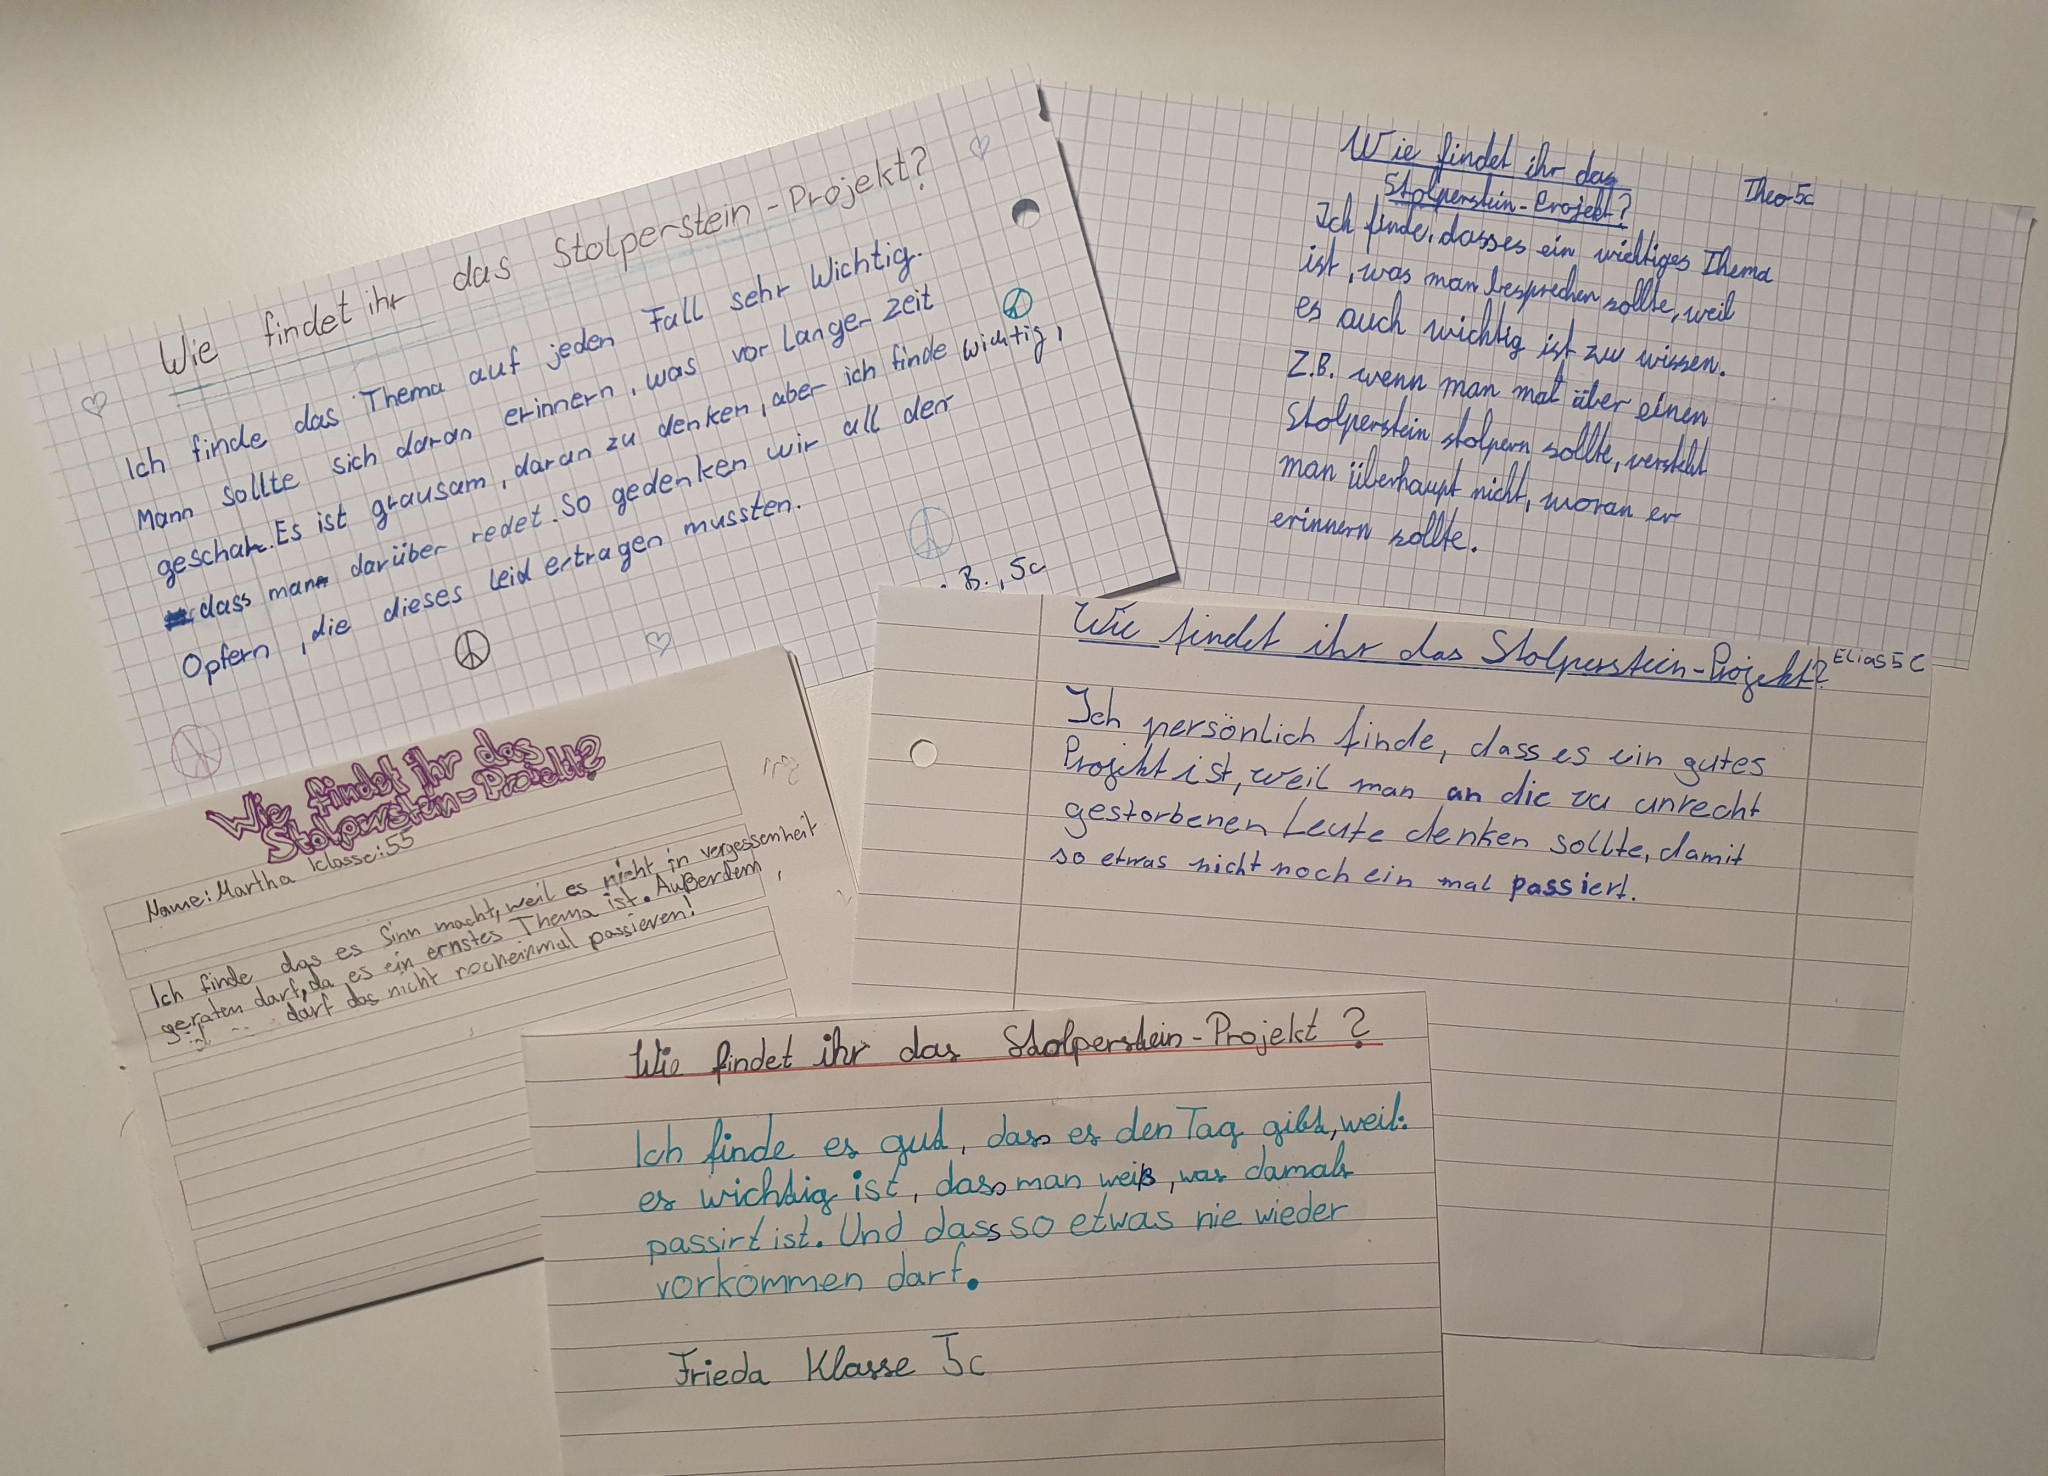 Wie findet ihr das Stolperstein-Projekt?
Ich finde das Thema auf jeden Fall sehr Wichtig.
Mann sollte sich daran erinnern, was vor langer Zeit
geschah. Es ist grausam, daran zu denken, aber ich finde wichtig,
dass man darüber redet. So gedenken wir all der
Opfern, die dieses Leid ertragen mussten.
B., 5c
Wie findet ihr das
Stolperstein-Projekt?
Theo 5c
Ich finde, dass es ein wichtiges Thema
ist, was man besprechen sollte, weil
es auch wichtig ist zu wissen.
Z.B. wenn man mal über einen
Stolperstein stolpern sollte, versteht
man überhaupt nicht, woran er
erinnern sollte.
Wie findet ihr das Stolperstein-Projekt?
Elias 5c
Ich persönlich finde, dass es ein gutes
Projekt ist, weil man an die zu unrecht
gestorbenen Leute denken sollte, damit
so etwas nicht noch ein mal passiert.
Wie findet ihr das
Stolperstein-Projekt?
Name: Martha Klasse: 55
Ich finde das es Sinn macht, weil es nicht in vergessenheit
geraten darf, da es ein ernstes Thema ist. Außerdem,
darf das nicht nocheinmal passieren!
Wie findet ihr das Stolperstein-Projekt?
Ich finde es gut, dass es den Tag gibt, weil:
es wichtig ist, dass man weiß, was damals
passirt ist. Und dass so etwas nie wieder
vorkommen darf.
Frieda Klasse 5c